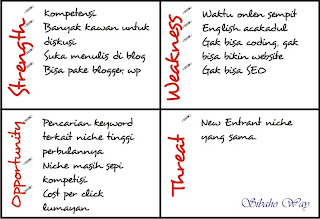 Strength
Kompetensi
Banyak kawan untuk
diskusi
Suka menulis di blog
Bisa pake blogger, wp
Weakness
Waktu onlen sempit
English acakadul
Gak bisa coding, gak
bisa bikin website
Gak bisa SEO
Opportunity
Pencarian keyword
terkait niche tinggi
perbulannya
Niche masih sepi
kompetisi
Cost per click
lumayan
Threat
New Entrant niche
yang sama.
Sibaho Way